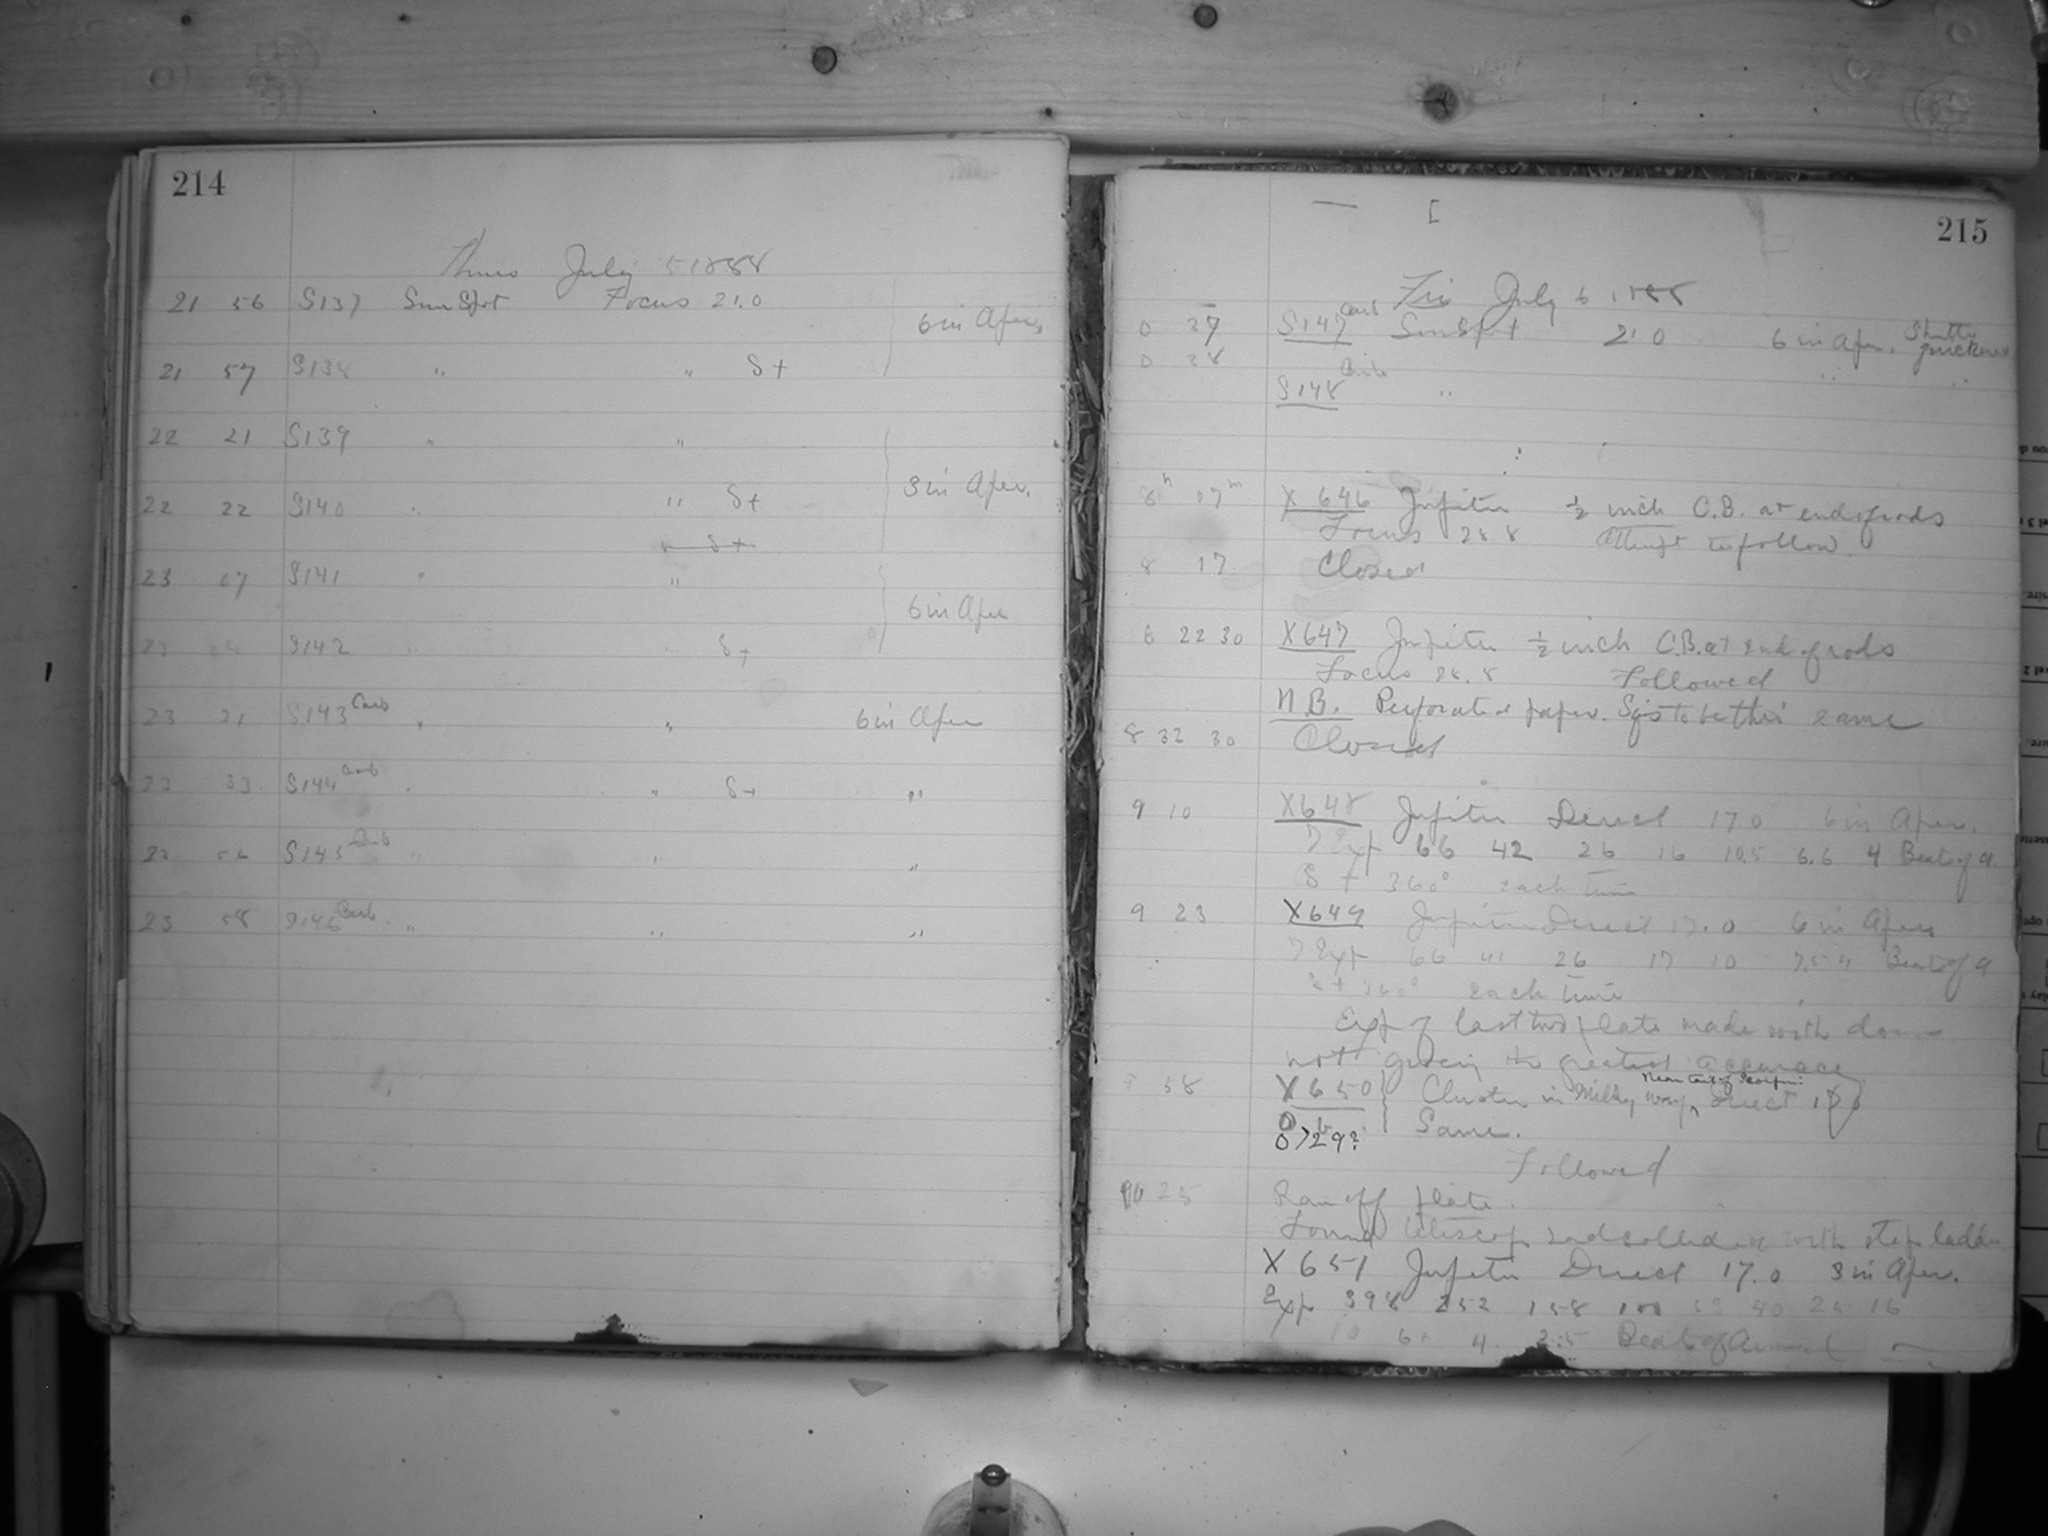 214
Thurs July 5 1888
21 56 S137 Sun Spot Focus 21.0
6 in Aper.
21 57 S138 " " S+
22 21 S139 " "
3 in Aper.
22 22 S140 " " S+
" S+
23 07 S141 " "
6 in Aper
23 S142 " " S+
23 21 S143 Carb " " 6 in Aper
23 33 S144 Carb " " S+ "
23 56 S145 Carb " " "
23 58 S146 Carb " " "
215
Fri July 6 1888
0 37 S147 Carb Sun Spot 21.0 6 in Aper. Shutter
0 38
S148 Carb " " "
8h 07m X 646 Jupiter ½ inch C.B. at end of rods
Focus 28.8 Attempt to follow.
8 17 Closed
8 22 30 X647 Jupiter ½ inch C.B. at end of rods
Focus 28.8 Followed
N.B. Perforated paper. Sq's to be this same
8 32 30 Closed
9 10 X648 Jupiter Direct 17.0 6 in Aper.
7 Exp 66 42 26 16 10.5 6.6 4 Beats of a
S + 360° each time
9 23 X649 Jupiter Direct 17.0 6 in Aper
7 Exp 66 41 26 17 10 7.5 4 Beats of a
S + 360° each time
Exp of last two plate made with dome
not giving the greatest accuracy
58 X650 Cluster in Milky Way, near tail of Scorpii. Direct
Same.
Followed
10 25 Ran off plate.
Found telescope had collided with step ladder
X 651 Jupiter Direct 17.0 3 in Aper.
Exp 398 252 158 100 63 40 25 16
10 6 4 2.5 Beats of